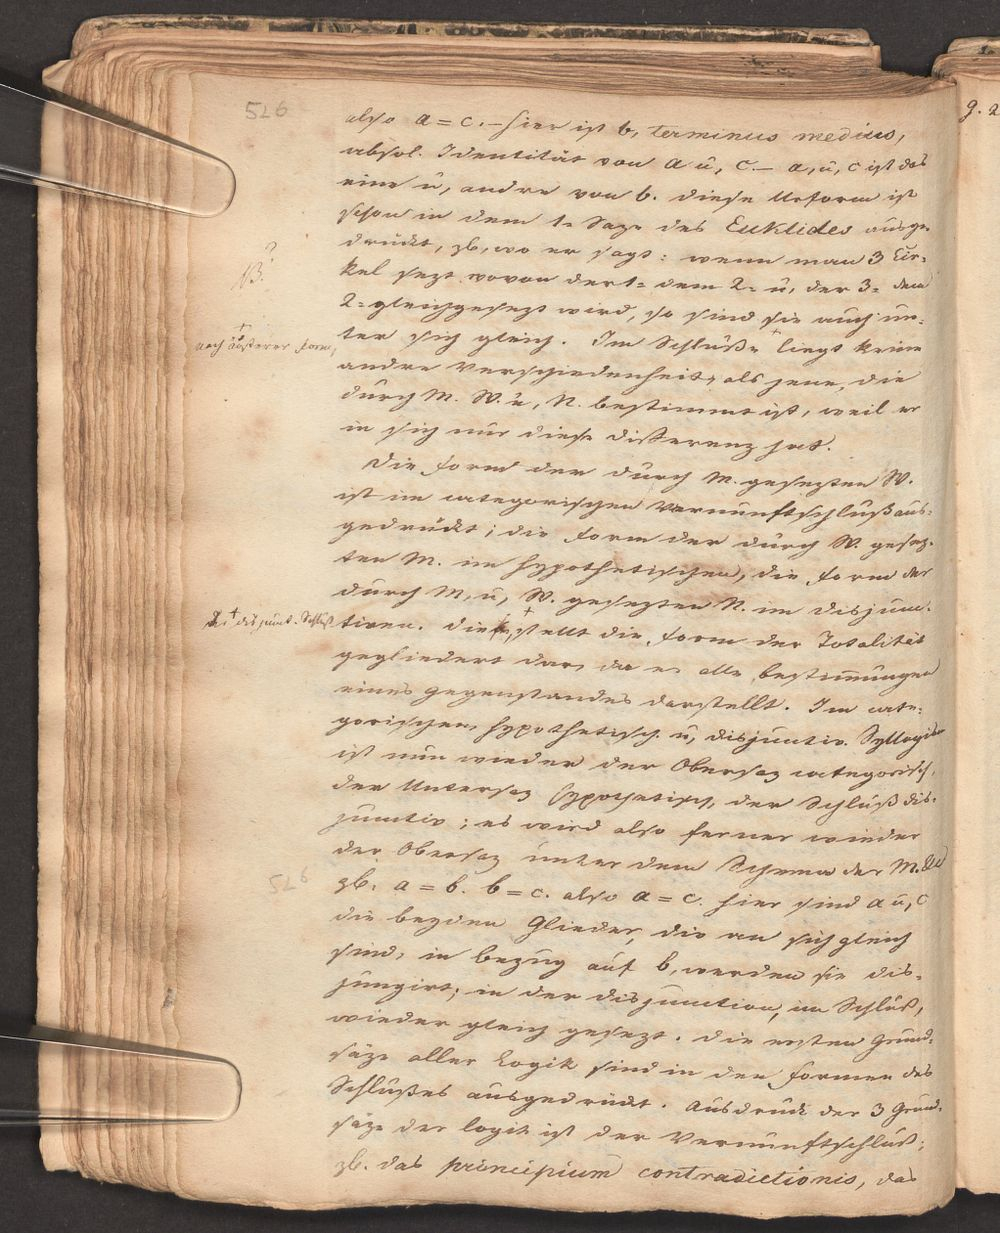 526
also a = c. – hier ist b, terminus medius,
absol. Identität von a u, c. – a, u, c ist das
eine u, andre von b. diese Urform ist
schon in dem 1= Saze des Euklides ausge-
drückt, zb, wo er sagt: wenn man 3 Cir-
NB. ?
kel sezt wovon der 1= dem 2= u, der 3= dem
2= gleichgesezt wird, so sind sie auch un-
+ nach äußerer Form,
ter sich gleich. Im Schluße + liegt keine
andre Verschiedenheit, als jene, die
durch M. W. u, N. bestimmt ist, weil er
in sich nur diese Differenz hat.
Die Form der durch M. gesezten W.
ist im categorischen Vernunftschluß aus-
gedrückt; die Form der durch W. gesez-
ten M. im hypothetischen, die Form der
durch M, u, W. gesezten N. im disjunc-
+ disjunct. Schluß
tiven. + stellt die Form der Totalität
gegliedert dar, da er alle bestimungen
eines Gegenstandes darstellt. Im cate-
gorischen, hypothetisch. u, disjunctiv. Syllogism
ist nun wieder der Obersaz categorisch,
der Untersaz hypothetisch, der Schluß dis-
junctiv; es wird also ferner wieder
der Obersaz unter dem Schema der M.
526
zb. a = b. b = c. also a = c. hier sind a u, c
die beyden Glieder, die an sich gleich
sind, in bezug auf b, werden sie dis-
jungirt; in der disjunction, im Schluß,
wieder gleich gesezt. Die ersten Grund-
säze aller Logik sind in den Formen des
Schlußes ausgedrückt. Ausdruck der 3 Grund-
säze der Logik ist der Vernunftschluß;
zb. das principium contradictionis, das